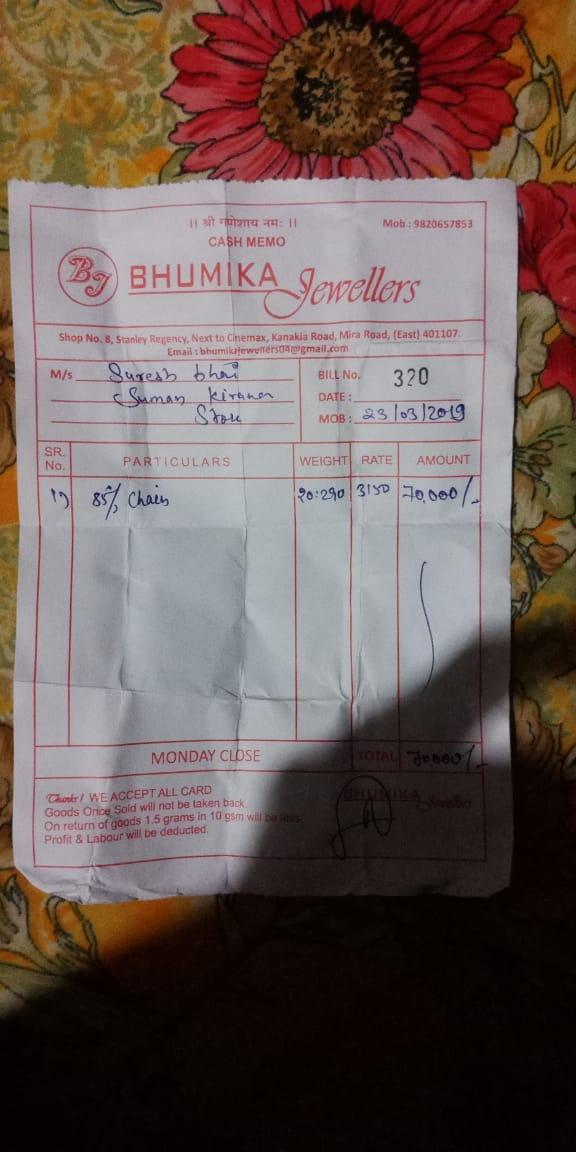 || श्री गणेशाय नमः ||
Mob : 9820657853
CASH MEMO
BJ BHUMIKA Jewellers
Shop No. 8, Stanley Regency, Next to Cinemax, Kanakia Road, Mira Road, (East) 401107.
Email : bhumikajewellers04@gmail.com
M/s Suresh bhai
Suman Kirana
Store
BILL No. 320
DATE :
MOB : 23/03/2019
SR. No. PARTICULARS WEIGHT RATE AMOUNT
1) 85% Chain 20:290 3150 70,000/-
MONDAY CLOSE TOTAL 70,000/-
Thanks! WE ACCEPT ALL CARD
Goods Once Sold will not be taken back
On return of goods 1.5 grams in 10 gsm will be less
Profit & Labour will be deducted.
BHUMIKA Jewellers